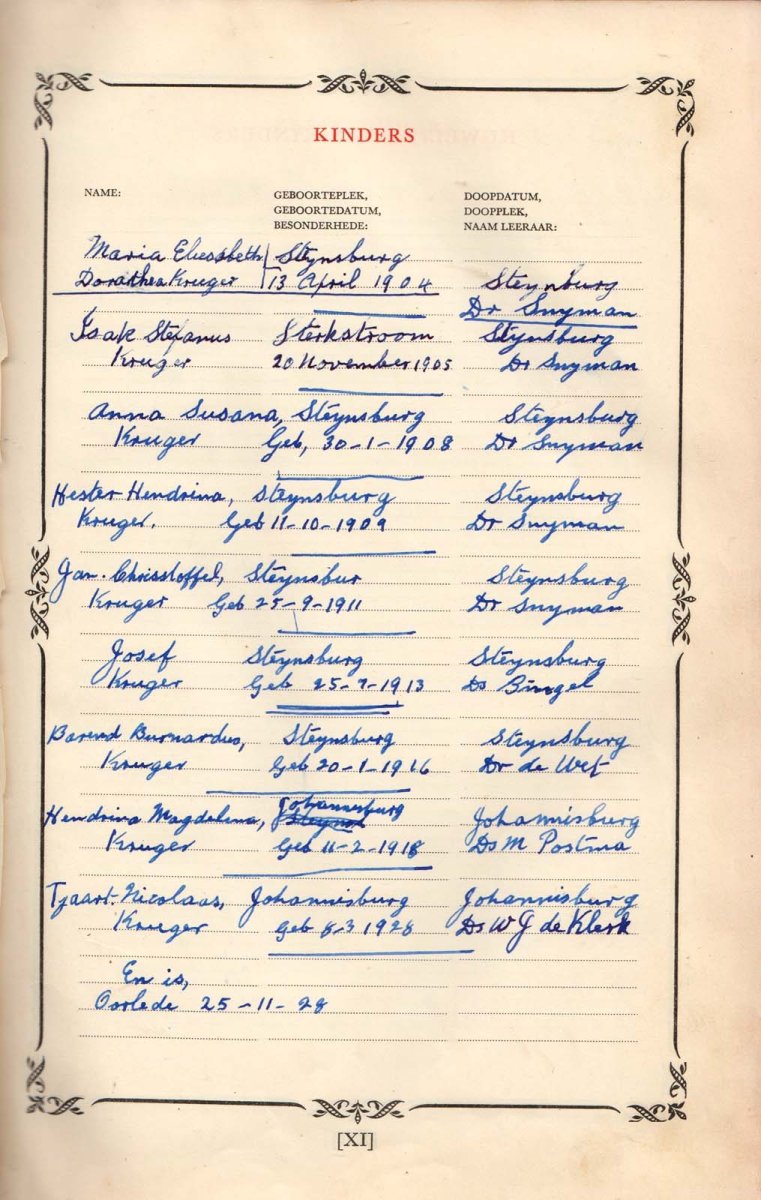 KINDERS
NAME:
GEBOORTEPLEK,
GEBOORTEDATUM,
BESONDERHEDE:
DOOPDATUM,
DOOPPLEK,
NAAM LEERAAR:
Maria Eliesabeth Steynsburg
Dorathea Kruger 13 April 1904 Steynburg
Dr Snyman
Isak Stefanus Sterkstroom Steynsburg
Kruger 20 November 1905 Dr Snyman
Anna Susana, Steynsburg Steynsburg
Kruger Geb, 30-1-1908 Dr Snyman
Hester Hendrina, Steynsburg Steynsburg
Kruger. Geb 11-10-1909 Dr Snyman
Jan. Chrisstoffel, Steynsbur Steynsburg
Kruger Geb 25-9-1911 Dr Snyman
Josef Steynsburg Steynsburg
Kruger Geb 25-7-1913 Ds
Barend Burnardus, Steynsburg Steynsburg
Kruger Geb 20-1-1916 Dr de Wet
Hendrina Magdalena, Johannisburg Johannisburg
Kruger Geb 11-2-1918 Ds M Postma
Tjaart. Nicolaas, Johannisburg Johannisburg
Kruger Geb 8-3 1928 Ds W J de Klerk
En is,
Oorlede 25-11-28
[XI]